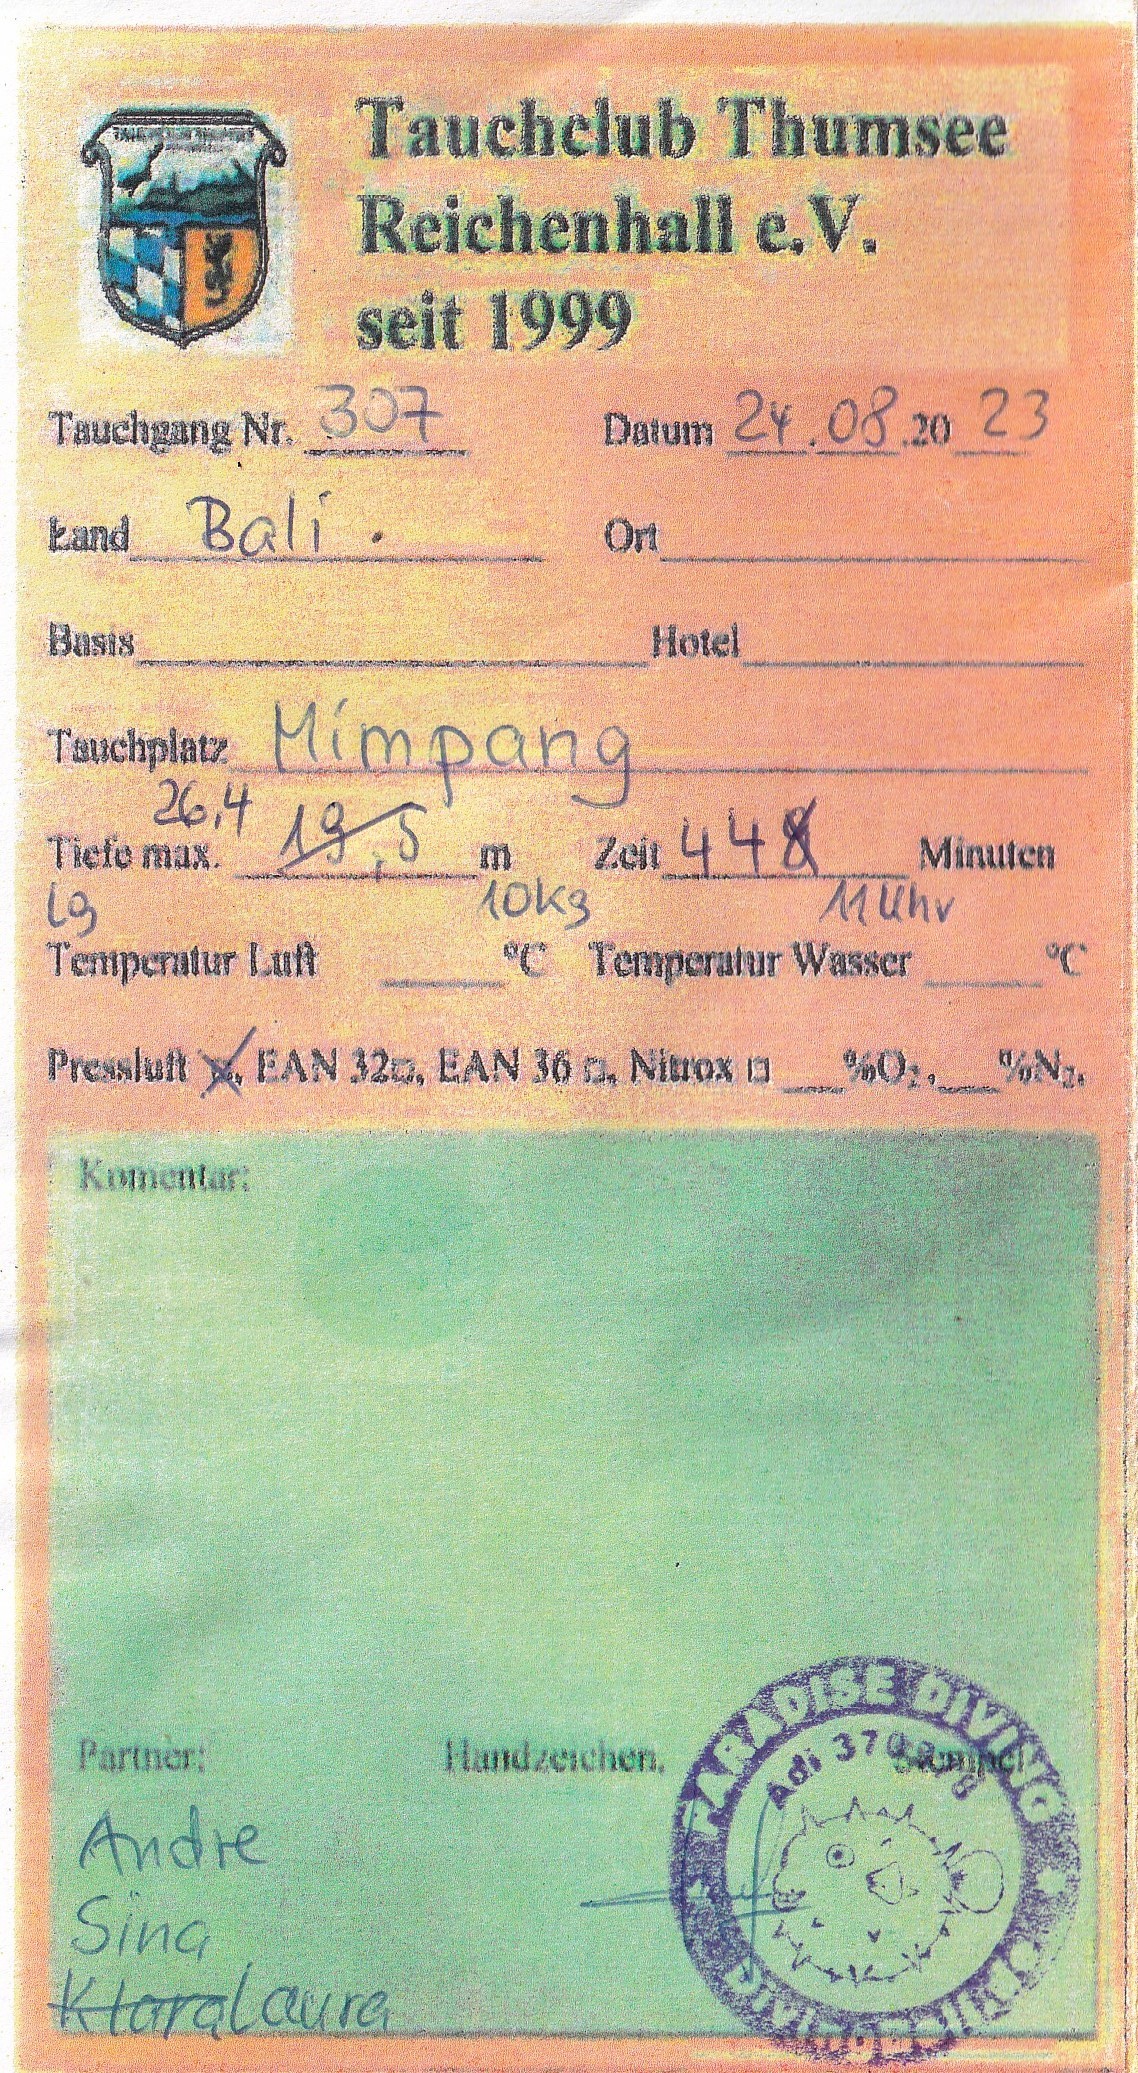 Tauchclub Thumsee
Reichenhall e.V.
seit 1999
Tauchgang Nr. 307 Datum 24.08.2023
Land Bali. Ort
Basis Hotel
Tauchplatz Mimpang
26,4
Tiefe max. 19,5 m Zeit 448 Minuten
lg 10kg 11 Uhr
Temperatur Luft °C Temperatur Wasser °C
Pressluft ☒, EAN 32□, EAN 36 □, Nitrox □ ___%O₂, ___%N₂,
Komentar:
PARADISE DIVING
Adi 370
Partner: Handzeichen. Stempel
Andre
Sina
Klara Laura